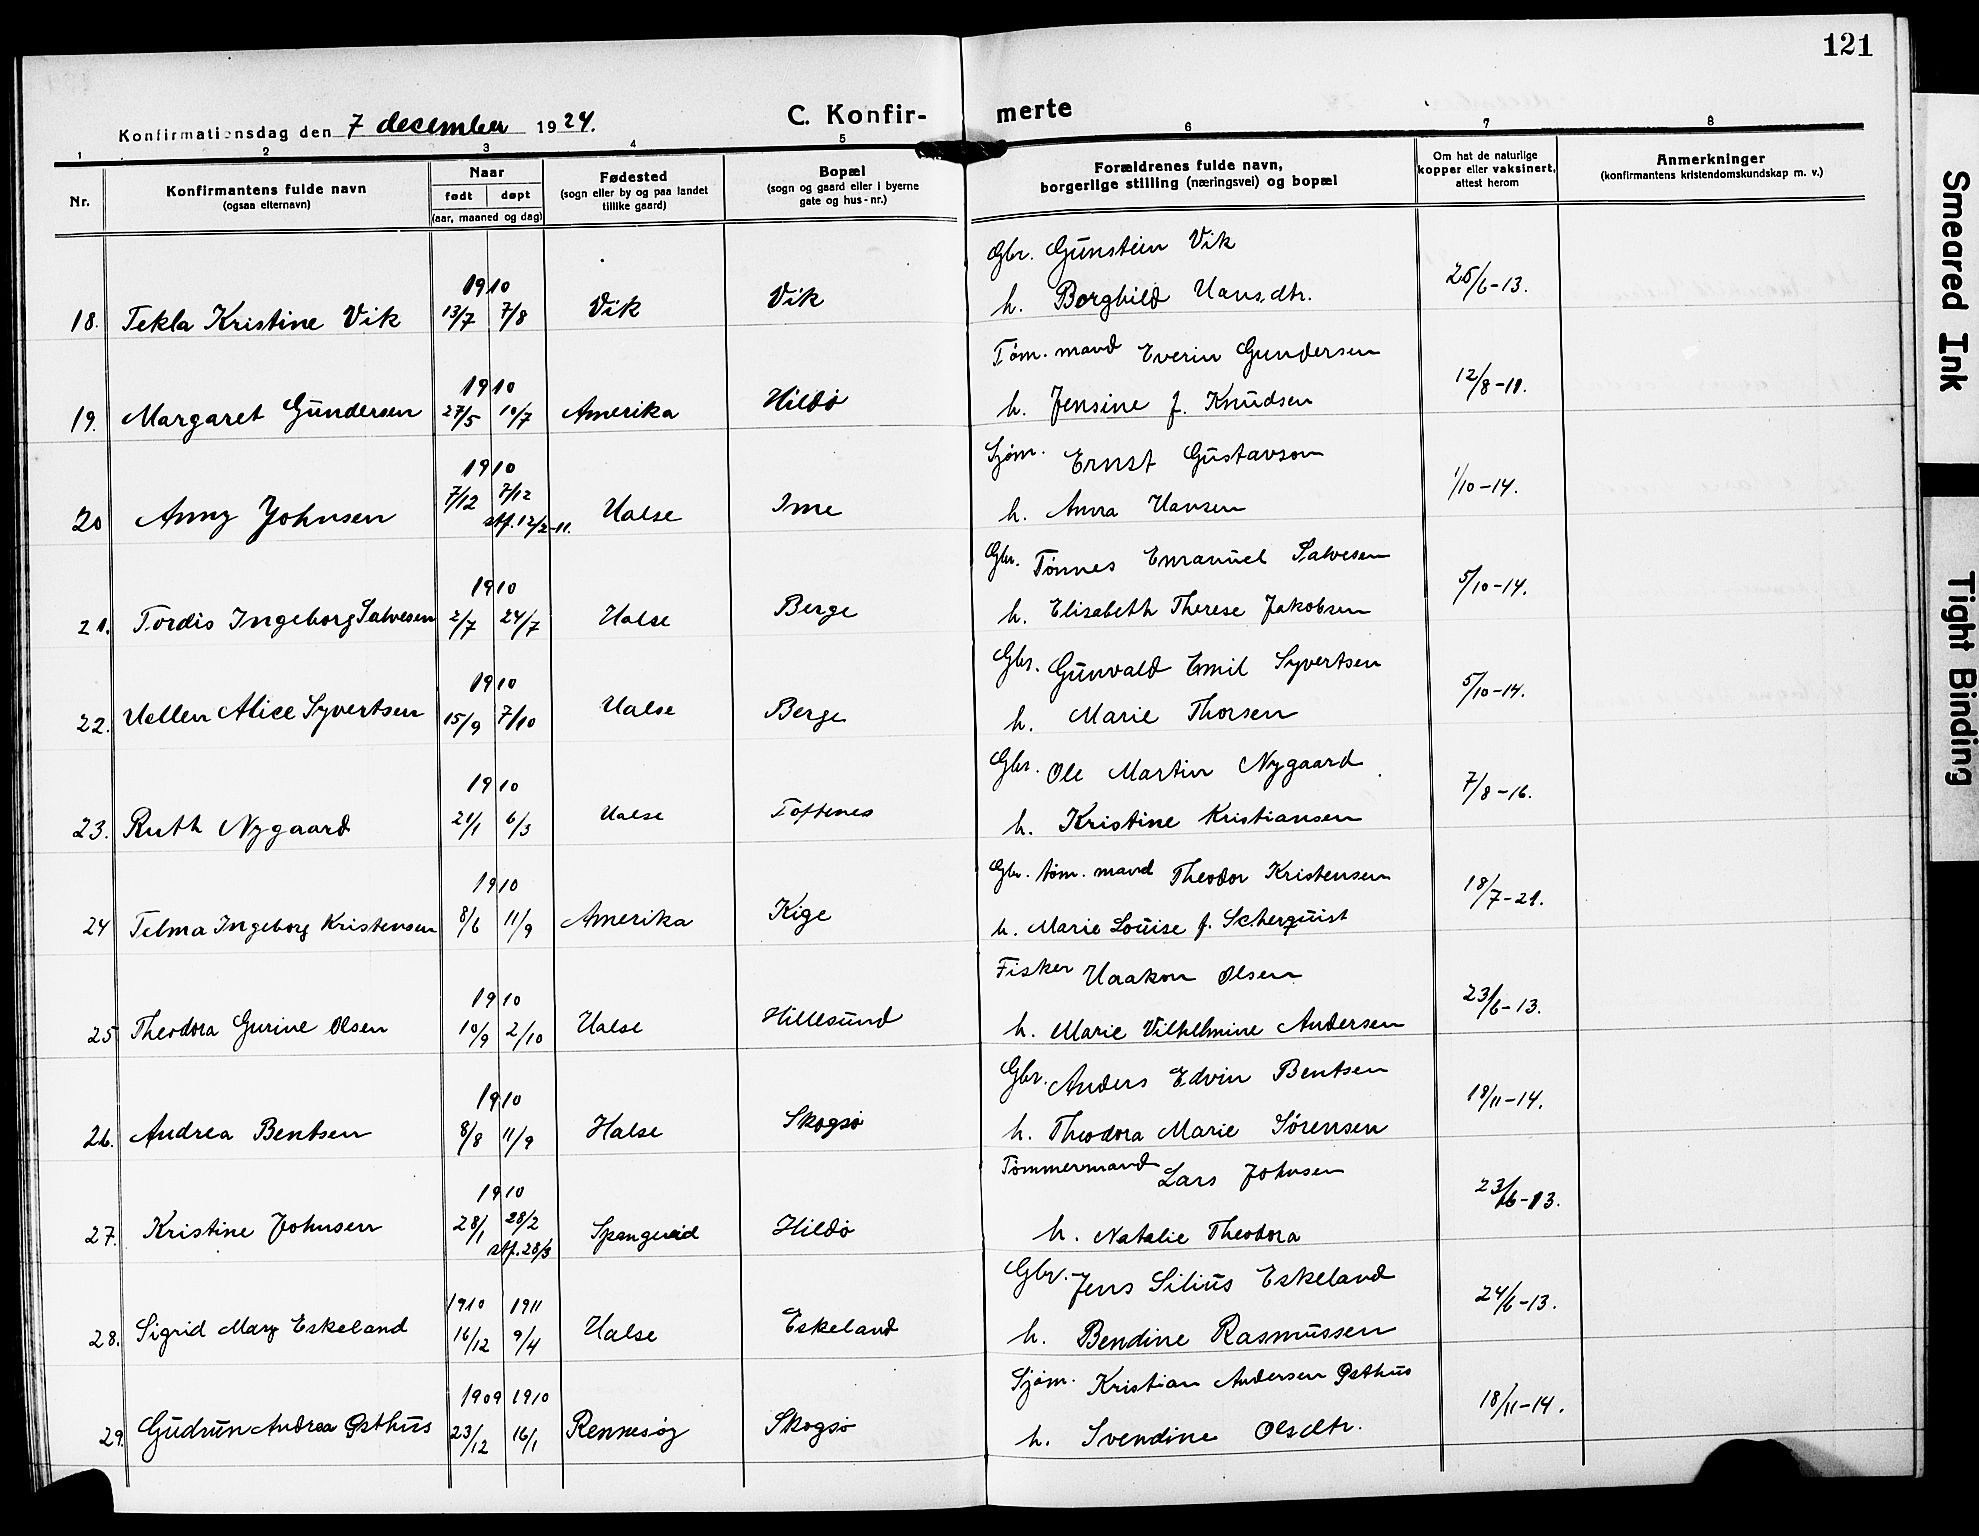 121
Konfirmationsdag den 7 december 1924.
C. Konfir-
merte
1 2 3 4 5 6 7 8
Nr.
Konfirmantens fulde navn
(ogsaa efternavn)
Naar
født døpt
(aar, maaned og dag)
Fødested
(sogn eller by og paa landet
tillike gaard)
Bopæl
(sogn og gaard eller i byerne
gate og hus-nr.)
Forældrenes fulde navn,
borgerlige stilling (næringsvei) og bopæl
Om hat de naturlige
kopper eller vaksinert,
attest herom
Anmerkninger
(konfirmantens kristendomskundskap m. v.)
1910 Gbr. Gunstein Vik
18. Tekla Kristine Vik 13/7 7/8 Vik Vik h. Borghild Hansdtr. 25/6-13.
1910 Tøm. mand Everin Gundersen
19. Margaret Gundersen 27/5 10/7 Amerika Hildø h. Jensine f. Knudsen 12/8-11.
1910 Sjøm. Ernst Gustavson
20 Anny Johnsen 7/12 7/12 Halse Ime h. Anna Hansen 1/10-14.
stf. 12/2-11.
1910 Gbr. Tønnes Emanuel Salvesen
21. Tordis Ingeborg Salvesen 2/7 24/7 Halse Berge h. Elisabeth Therese Jakobsen 5/10-14.
1910 Gbr. Gunvald Emil Syvertsen
22. Hellen Alice Syvertsen 15/9 7/10 Halse Berge h. Marie Thorsen 5/10-14.
1910 Gbr. Ole Martin Nygaard
23. Ruth Nygaard 21/1 6/3 Halse Toftenes h. Kristine Kristiansen 7/8-16.
1910 Gbr. tøm. mand Theodor Kristensen
24 Telma Ingeborg Kristensen 8/6 11/9 Amerika Kige h. Marie Louise f. Scherquist 18/7-21.
1910 Fisker Haakon Olsen
25 Theodora Gurine Olsen 10/9 2/10 Halse Hillesund h. Marie Vilhelmine Andersen 23/6-13.
1910 Gbr. Anders Edvin Bentsen
26. Andrea Bentsen 8/8 11/9 Halse Skogsø h. Theodora Marie Sørensen 18/11-14.
1910 Tømmermand Lars Johnsen
27. Kristine Johnsen 28/1 28/2 Spangereid Hildø h. Natalie Theodora 23/6-13.
stf. 28/3
1910 1911 Gbr. Jens Silius Eskeland
28. Sigrid Mary Eskeland 16/12 9/4 Halse Eskeland h. Bendine Rasmussen 24/6-13.
1909 1910 Sjøm. Kristian Andersen Østhus
29. Gudrun Andrea Østhus 23/12 16/1 Rennesøy Skogsø h. Svendine Olsdtr. 18/11-14.
Smeared Ink
Tight Binding